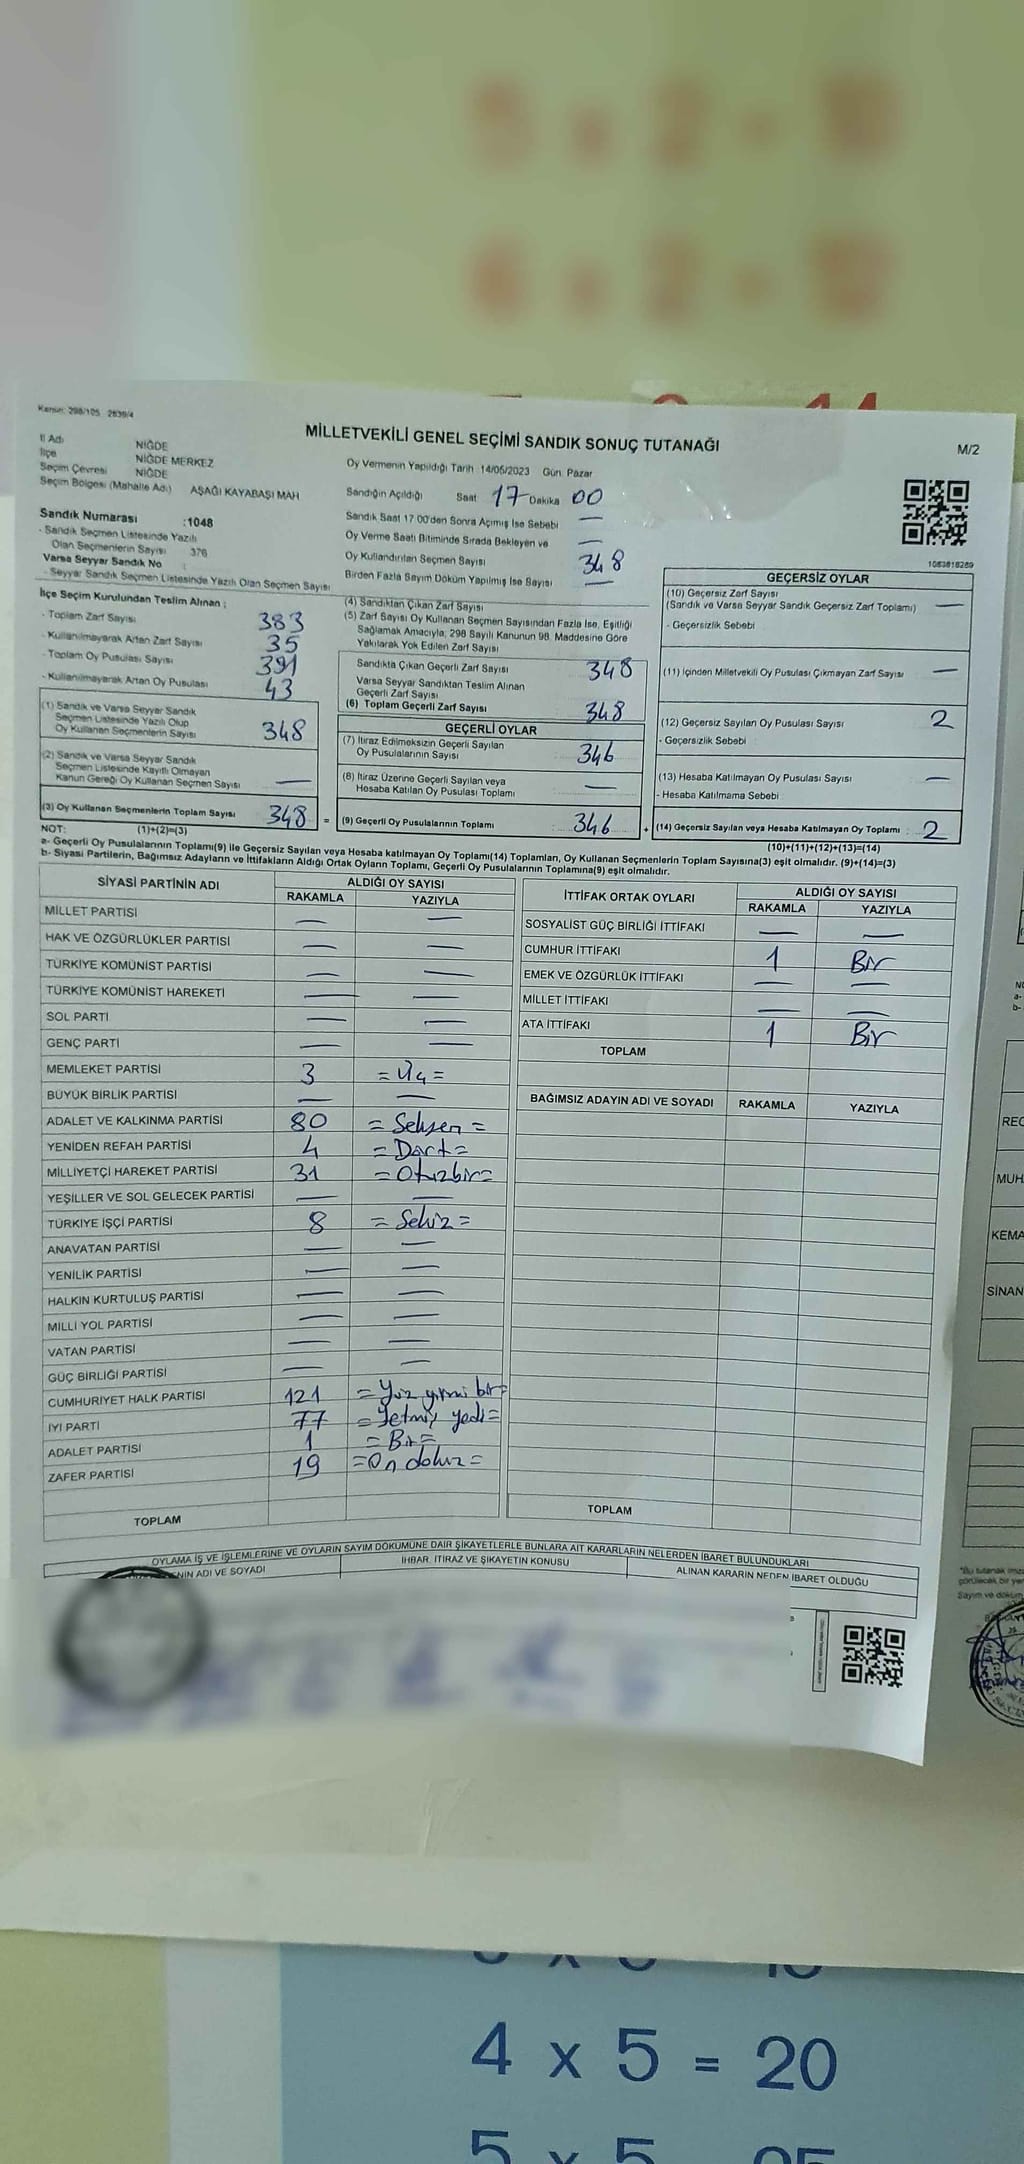 5 x 2 = 10
6 x 2 = 12
Kanun: 298/105 2839/4
MİLLETVEKİLİ GENEL SEÇİMİ SANDIK SONUÇ TUTANAĞI
M/2
İl Adı NİĞDE
İlçe NİĞDE MERKEZ
Seçim Çevresi NİĞDE
Seçim Bölgesi (Mahalle Adı) AŞAĞI KAYABAŞI MAH
Oy Vermenin Yapıldığı Tarih 14/05/2023 Gün. Pazar
Sandığın Açıldığı Saat 17 Dakika 00
Sandık Saat 17.00'den Sonra Açımış İse Sebebi —
Oy Verme Saati Bitiminde Sırada Bekleyen ve —
Oy Kullandırılan Seçmen Sayısı 348
Birden Fazla Sayım Döküm Yapılmış İse Sayısı —
Sandık Numarası :1048
- Sandık Seçmen Listesinde Yazılı
Olan Seçmenlerin Sayısı 376
Varsa Seyyar Sandık No :
- Seyyar Sandık Seçmen Listesinde Yazılı Olan Seçmen Sayısı
İlçe Seçim Kurulundan Teslim Alınan ;
- Toplam Zarf Sayısı 383
- Kullanılmayarak Artan Zarf Sayısı 35
- Toplam Oy Pusulası Sayısı 391
- Kullanılmayarak Artan Oy Pusulası 43
(1) Sandık ve Varsa Seyyar Sandık
Seçmen Listesinde Yazılı Olup
Oy Kullanan Seçmenlerin Sayısı 348
(2) Sandık ve Varsa Seyyar Sandık
Seçmen Listesinde Kayıtlı Olmayan
Kanun Gereği Oy Kullanan Seçmen Sayısı —
(3) Oy Kullanan Seçmenlerin Toplam Sayısı 348 =
(4) Sandıktan Çıkan Zarf Sayısı
(5) Zarf Sayısı Oy Kullanan Seçmen Sayısından Fazla İse, Eşitliği
Sağlamak Amacıyla, 298 Sayılı Kanunun 98. Maddesine Göre
Yakılarak Yok Edilen Zarf Sayısı
Sandıkta Çıkan Geçerli Zarf Sayısı 348
Varsa Seyyar Sandıktan Teslim Alınan
Geçerli Zarf Sayısı
(6) Toplam Geçerli Zarf Sayısı 348
GEÇERLİ OYLAR
(7) İtiraz Edilmeksizin Geçerli Sayılan
Oy Pusulalarının Sayısı 346
(8) İtiraz Üzerine Geçerli Sayılan veya
Hesaba Katılan Oy Pusulası Toplamı —
(9) Geçerli Oy Pusulalarının Toplamı 346 +
1083818289
GEÇERSİZ OYLAR
(10) Geçersiz Zarf Sayısı
(Sandık ve Varsa Seyyar Sandık Geçersiz Zarf Toplamı) —
- Geçersizlik Sebebi
(11) İçinden Milletvekili Oy Pusulası Çıkmayan Zarf Sayısı —
(12) Geçersiz Sayılan Oy Pusulası Sayısı 2
- Geçersizlik Sebebi
(13) Hesaba Katılmayan Oy Pusulası Sayısı —
- Hesaba Katılmama Sebebi
(14) Geçersiz Sayılan veya Hesaba Katılmayan Oy Toplamı : 2
NOT: (1)+(2)=(3)
(10)+(11)+(12)+(13)=(14)
a- Geçerli Oy Pusulalarının Toplamı(9) ile Geçersiz Sayılan veya Hesaba katılmayan Oy Toplamı(14) Toplamları, Oy Kullanan Seçmenlerin Toplam Sayısına(3) eşit olmalıdır. (9)+(14)=(3)
b- Siyasi Partilerin, Bağımsız Adayların ve İttifakların Aldığı Ortak Oyların Toplamı, Geçerli Oy Pusulalarının Toplamına(9) eşit olmalıdır.
SİYASİ PARTİNİN ADI ALDIĞI OY SAYISI
RAKAMLA YAZIYLA
MİLLET PARTİSİ — —
HAK VE ÖZGÜRLÜKLER PARTİSİ — —
TÜRKİYE KOMÜNİST PARTİSİ — —
TÜRKİYE KOMÜNİST HAREKETİ — —
SOL PARTİ — —
GENÇ PARTİ — —
MEMLEKET PARTİSİ 3 = Üç =
BÜYÜK BİRLİK PARTİSİ — —
ADALET VE KALKINMA PARTİSİ 80 = Seksen =
YENİDEN REFAH PARTİSİ 4 = Dört =
MİLLİYETÇİ HAREKET PARTİSİ 31 = Otuzbir =
YEŞİLLER VE SOL GELECEK PARTİSİ — —
TÜRKİYE İŞÇİ PARTİSİ 8 = Sekiz =
ANAVATAN PARTİSİ — —
YENİLİK PARTİSİ — —
HALKIN KURTULUŞ PARTİSİ — —
MİLLİ YOL PARTİSİ — —
VATAN PARTİSİ — —
GÜÇ BİRLİĞİ PARTİSİ — —
CUMHURİYET HALK PARTİSİ 121 = Yüz yirmi bir =
İYİ PARTİ 77 = Yetmiş yedi =
ADALET PARTİSİ 1 = Bir =
ZAFER PARTİSİ 19 = On dokuz =
TOPLAM
İTTİFAK ORTAK OYLARI ALDIĞI OY SAYISI
RAKAMLA YAZIYLA
SOSYALİST GÜÇ BİRLİĞİ İTTİFAKI — —
CUMHUR İTTİFAKI 1 Bir
EMEK VE ÖZGÜRLÜK İTTİFAKI — —
MİLLET İTTİFAKI — —
ATA İTTİFAKI 1 Bir
TOPLAM
BAĞIMSIZ ADAYIN ADI VE SOYADI RAKAMLA YAZIYLA
TOPLAM
OYLAMA İŞ VE İŞLEMLERİNE VE OYLARIN SAYIM DÖKÜMÜNE DAİR ŞİKAYETLERLE BUNLARA AİT KARARLARIN NELERDEN İBARET BULUNDUKLARI
ADI VE SOYADI
İHBAR, İTİRAZ VE ŞİKAYETİN KONUSU
ALINAN KARARIN NEDEN İBARET OLDUĞU
REC
MUH
KEMA
SİNAN
4 x 5 = 20